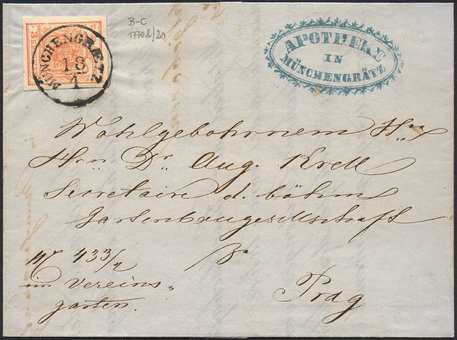 MÜNCHENGRÆTZ
18
1
B-C
APOTHEKE
IN
MÜNCHENGRÄTZ
Wohlgebohrnem H
Hrn Dr Aug. Krell
Secretaire d. böhm
Gartenbaugesellschaft
No 433/4
im Vereins=
garten.
Prag